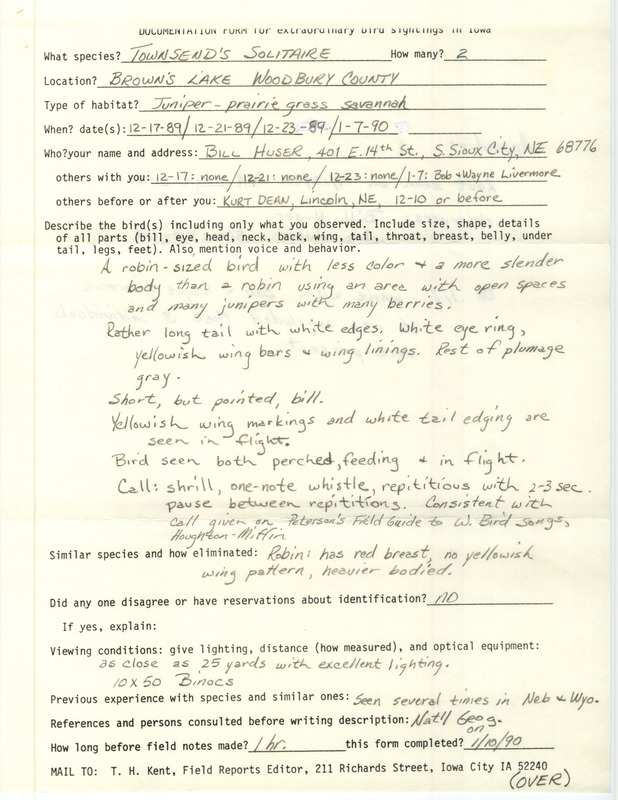 DOCUMENTATION FORM for extraordinary bird sightings in Iowa
What species? TOWNSEND'S SOLITAIRE How many? 2
Location? BROWN'S LAKE WOODBURY COUNTY
Type of habitat? Juniper - prairie grass savannah
When? date(s): 12-17-89/12-21-89/12-23-89/1-7-90
Who? your name and address: BILL HUSER, 401 E. 14th St., S. Sioux City, NE 68776
others with you: 12-17: none/12-21: none/12-23: none/1-7: Bob & Wayne Livermore
others before or after you: KURT DEAN, Lincoln, NE, 12-10 or before
Describe the bird(s) including only what you observed. Include size, shape, details
of all parts (bill, eye, head, neck, back, wing, tail, throat, breast, belly, under
tail, legs, feet). Also mention voice and behavior.
A robin-sized bird with less color & a more slender
body than a robin using an area with open spaces
and many junipers with many berries.
Rather long tail with white edges. White eye ring,
yellowish wing bars & wing linings. Rest of plumage
gray.
Short, but pointed, bill.
Yellowish wing markings and white tail edging are
seen in flight.
Bird seen both perched, feeding & in flight.
Call: shrill, one-note whistle, repititious with 2-3 sec.
pause between repititions. Consistent with
Call given on Peterson's Field Guide to W. Bird Songs,
Houghton-Mifflin
Similar species and how eliminated: Robin: has red breast, no yellowish
wing pattern, heavier bodied.
Did any one disagree or have reservations about identification? NO
If yes, explain:
Viewing conditions: give lighting, distance (how measured), and optical equipment:
as close as 25 yards with excellent lighting.
10x50 Binocs
Previous experience with species and similar ones: Seen several times in Neb & Wyo.
References and persons consulted before writing description: Nat'l Geog.
on
How long before field notes made? 1 hr. this form completed? 1/10/90
MAIL TO: T. H. Kent, Field Reports Editor, 211 Richards Street, Iowa City IA 52240
(OVER)